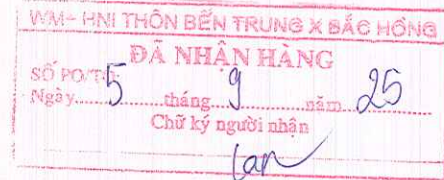 WM- HNI THÔN BẾN TRUNG X BẮC HỒNG
ĐÃ NHẬN HÀNG
SỐ PO/TO:
Ngày.....5.....tháng....9.....năm....25
Chữ ký người nhận
Lan